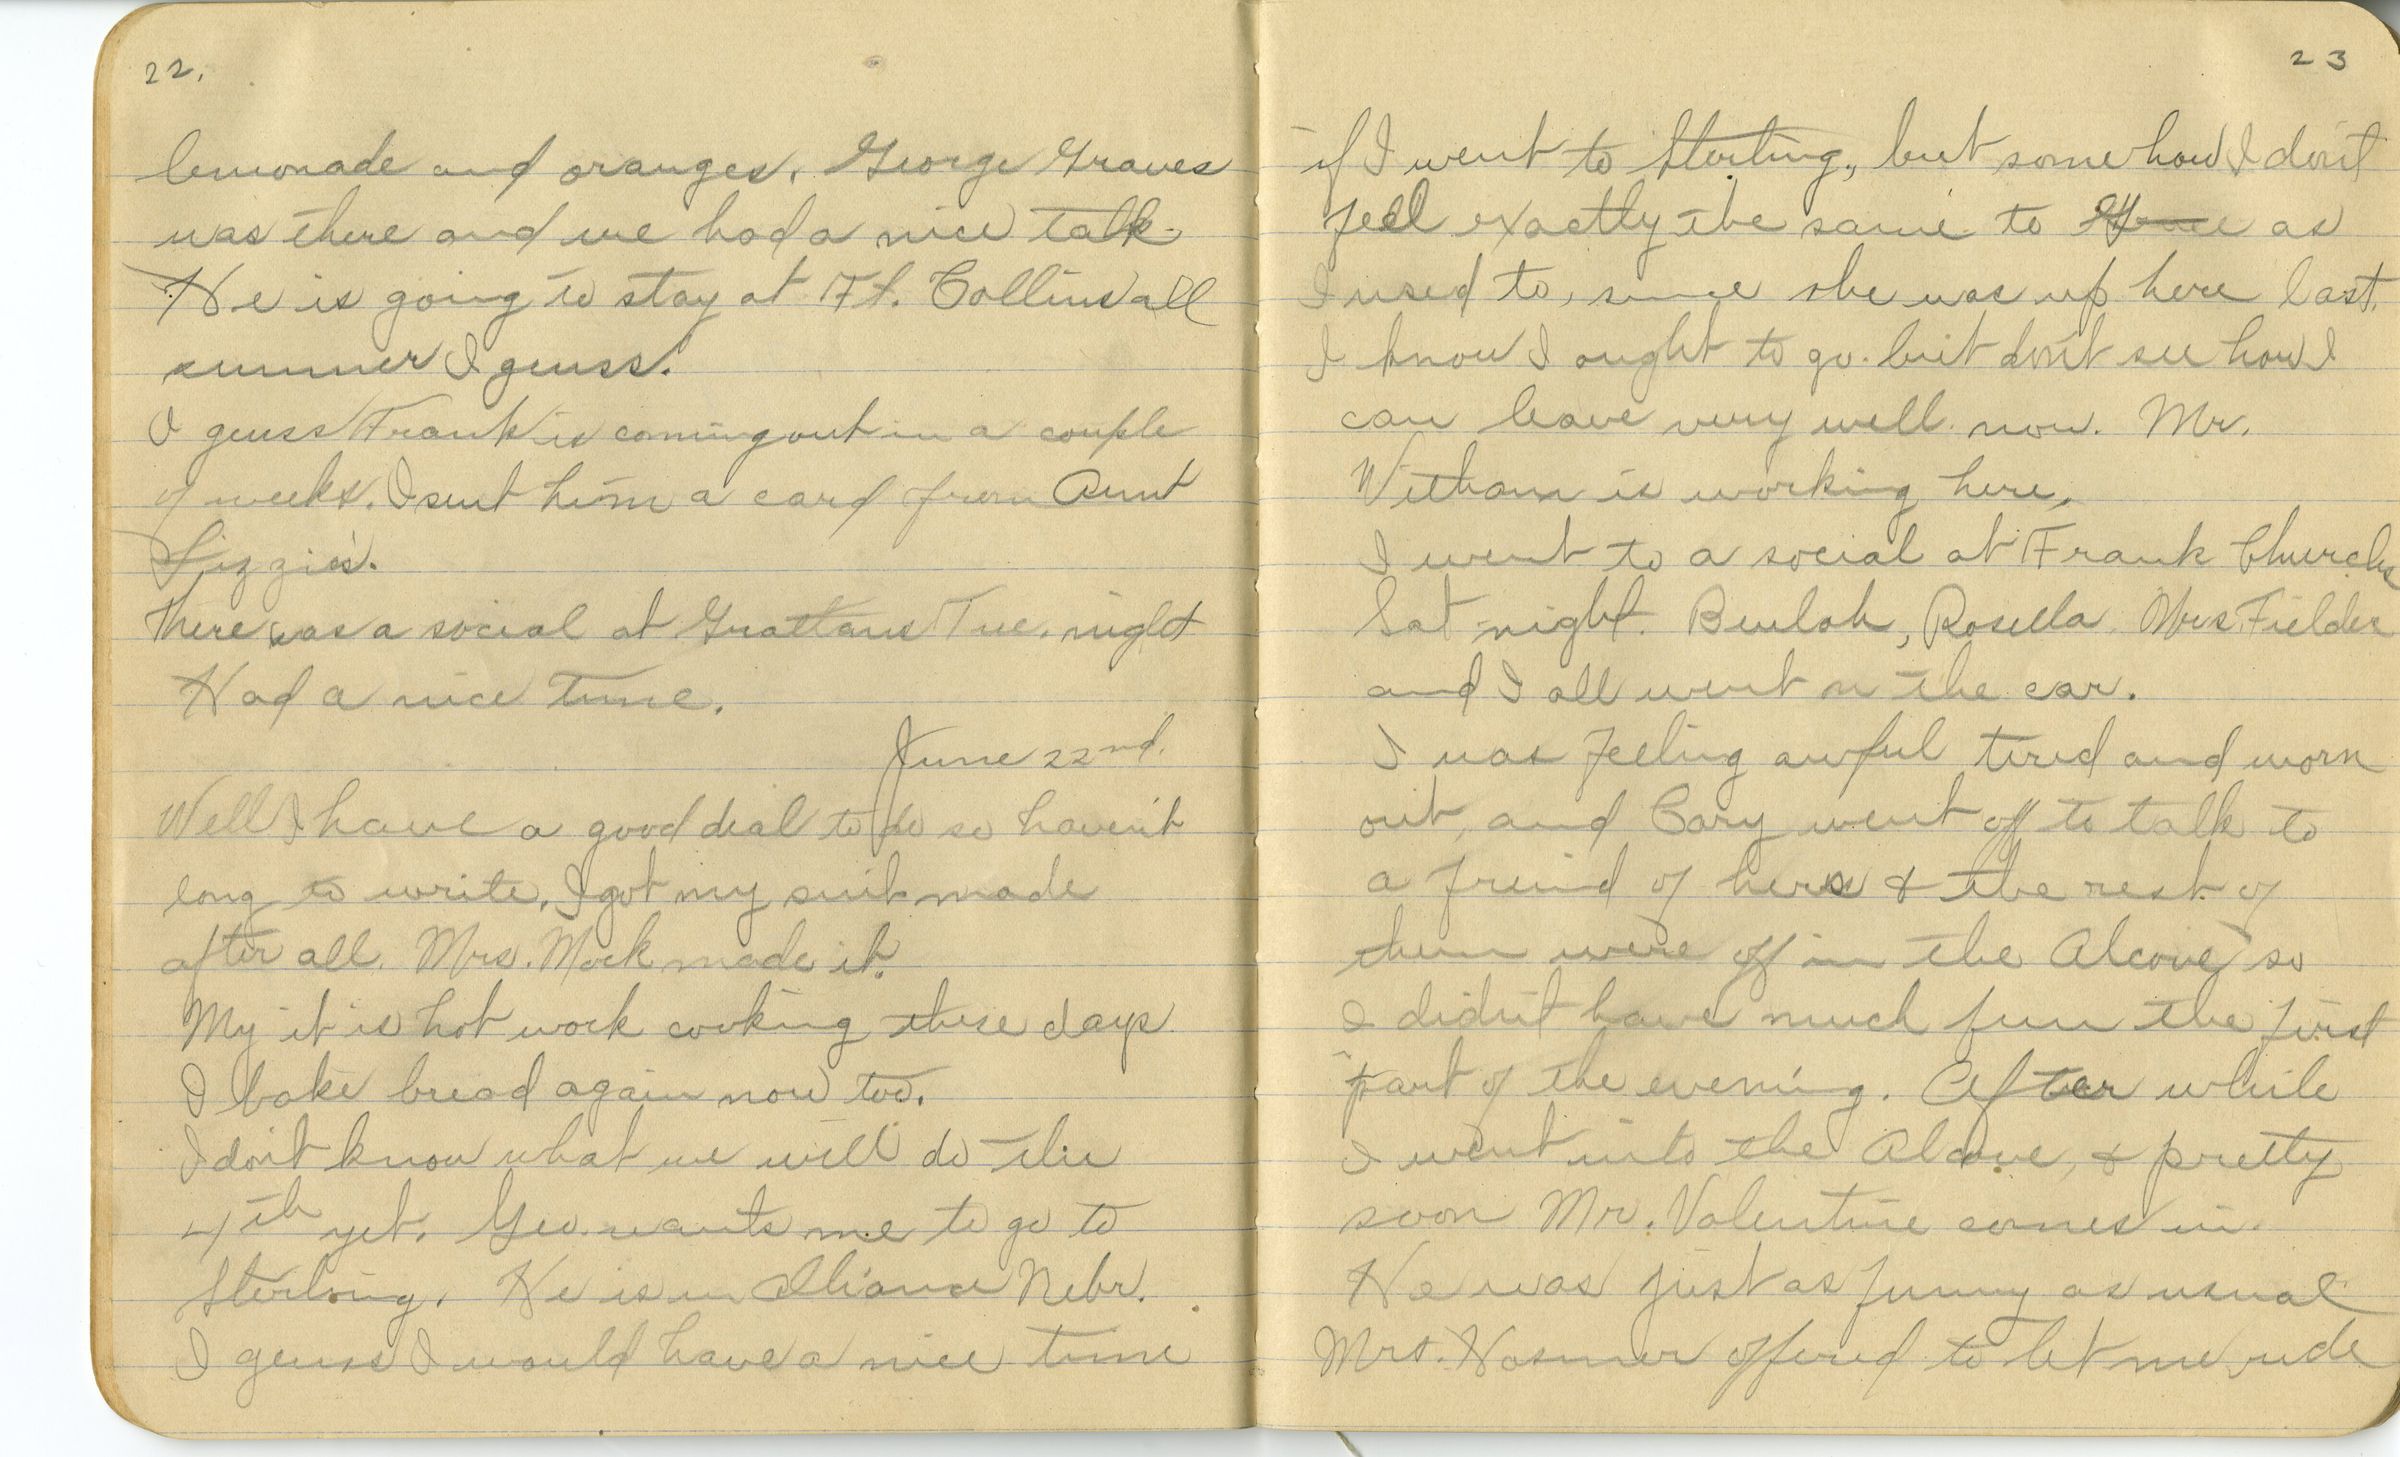 22.
lemonade and oranges. George Graves
was there and we had a nice talk.
He is going to stay at Ft. Collins all
summer I geuss.
I geuss Frank is coming out in a couple
of weeks. I sent him a card from Aunt
Lizzie's.
There was a social at Grattans Tue. night
Had a nice time.
June 22nd.
Well I have a good deal to do so haven't
long to write. I got my suit made
after all. Mrs. Mock made it.
My it is hot work cooking these days
I bake bread again now too.
I don't know what we will do the
4th yet. Geo. wants me to go to
Sterling. He is in Alliance Nebr.
I geuss I would have a nice time
23
if I went to Sterling, but some how I don't
feel exactly the same to as
I used to, since she was up here last.
I know I ought to go. but don't see how I
can leave very well now. Mr.
Witham is working here.
I went to a social at Frank Churchs
Sat night. Beulah, Rosella, Mrs. Fielder
and I all went on the car.
I was feeling awful tired and worn
out, and Cary went off to talk to
a freind of hers & the rest of
them were off in the Alcove so
I didn't have much fun the first
part of the evening. After while
I went into the Alcove, & pretty
soon Mr. Valentine comes in.
He was just as funny as usual
Mrs. Hosmer offered to let me ride